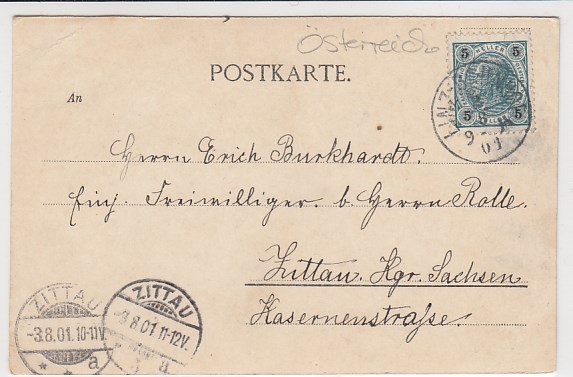 Österreich
5 HELLER 5
POSTKARTE.
5 HELLER 5
LINZ
01
An
Herrn Erich Burkhardt.
Einj. Freiwilliger. b. Herrn Rolle.
Zittau. Kgr. Sachsen
Kasernenstraße.
ZITTAU
-3.8.01.10-11V.
* * a
ZITTAU
-3.8.01 11-12V.
a